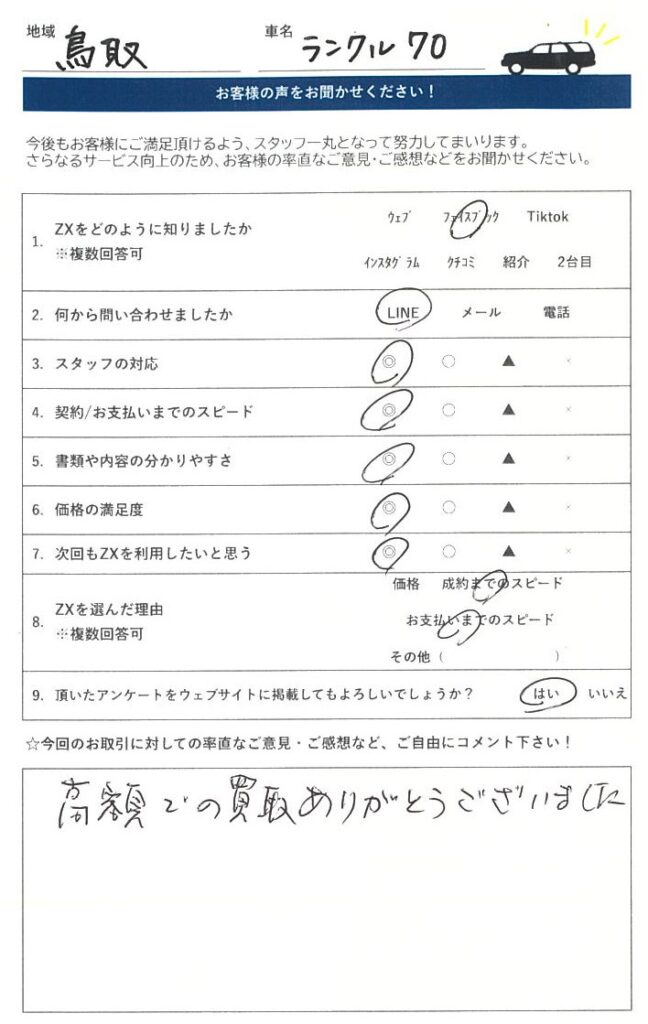 地域 鳥取 車名 ランクル70
お客様の声をお聞かせください！
今後もお客様にご満足頂けるよう、スタッフ一丸となって努力してまいります。
さらなるサービス向上のため、お客様の率直なご意見・ご感想などをお聞かせください。
1. ZXをどのように知りましたか
※複数回答可
ウェブ フェイスブック Tiktok
インスタグラム クチコミ 紹介 2台目
2. 何から問い合わせましたか LINE メール 電話
3. スタッフの対応 ◎ ○ ▲ ×
4. 契約/お支払いまでのスピード ◎ ○ ▲ ×
5. 書類や内容の分かりやすさ ◎ ○ ▲ ×
6. 価格の満足度 ◎ ○ ▲ ×
7. 次回もZXを利用したいと思う ◎ ○ ▲ ×
8. ZXを選んだ理由
※複数回答可
価格 成約までのスピード
お支払いまでのスピード
その他（ ）
9. 頂いたアンケートをウェブサイトに掲載してもよろしいでしょうか？ はい いいえ
☆今回のお取引に対しての率直なご意見・ご感想など、ご自由にコメント下さい！
高額での買取ありがとうございました